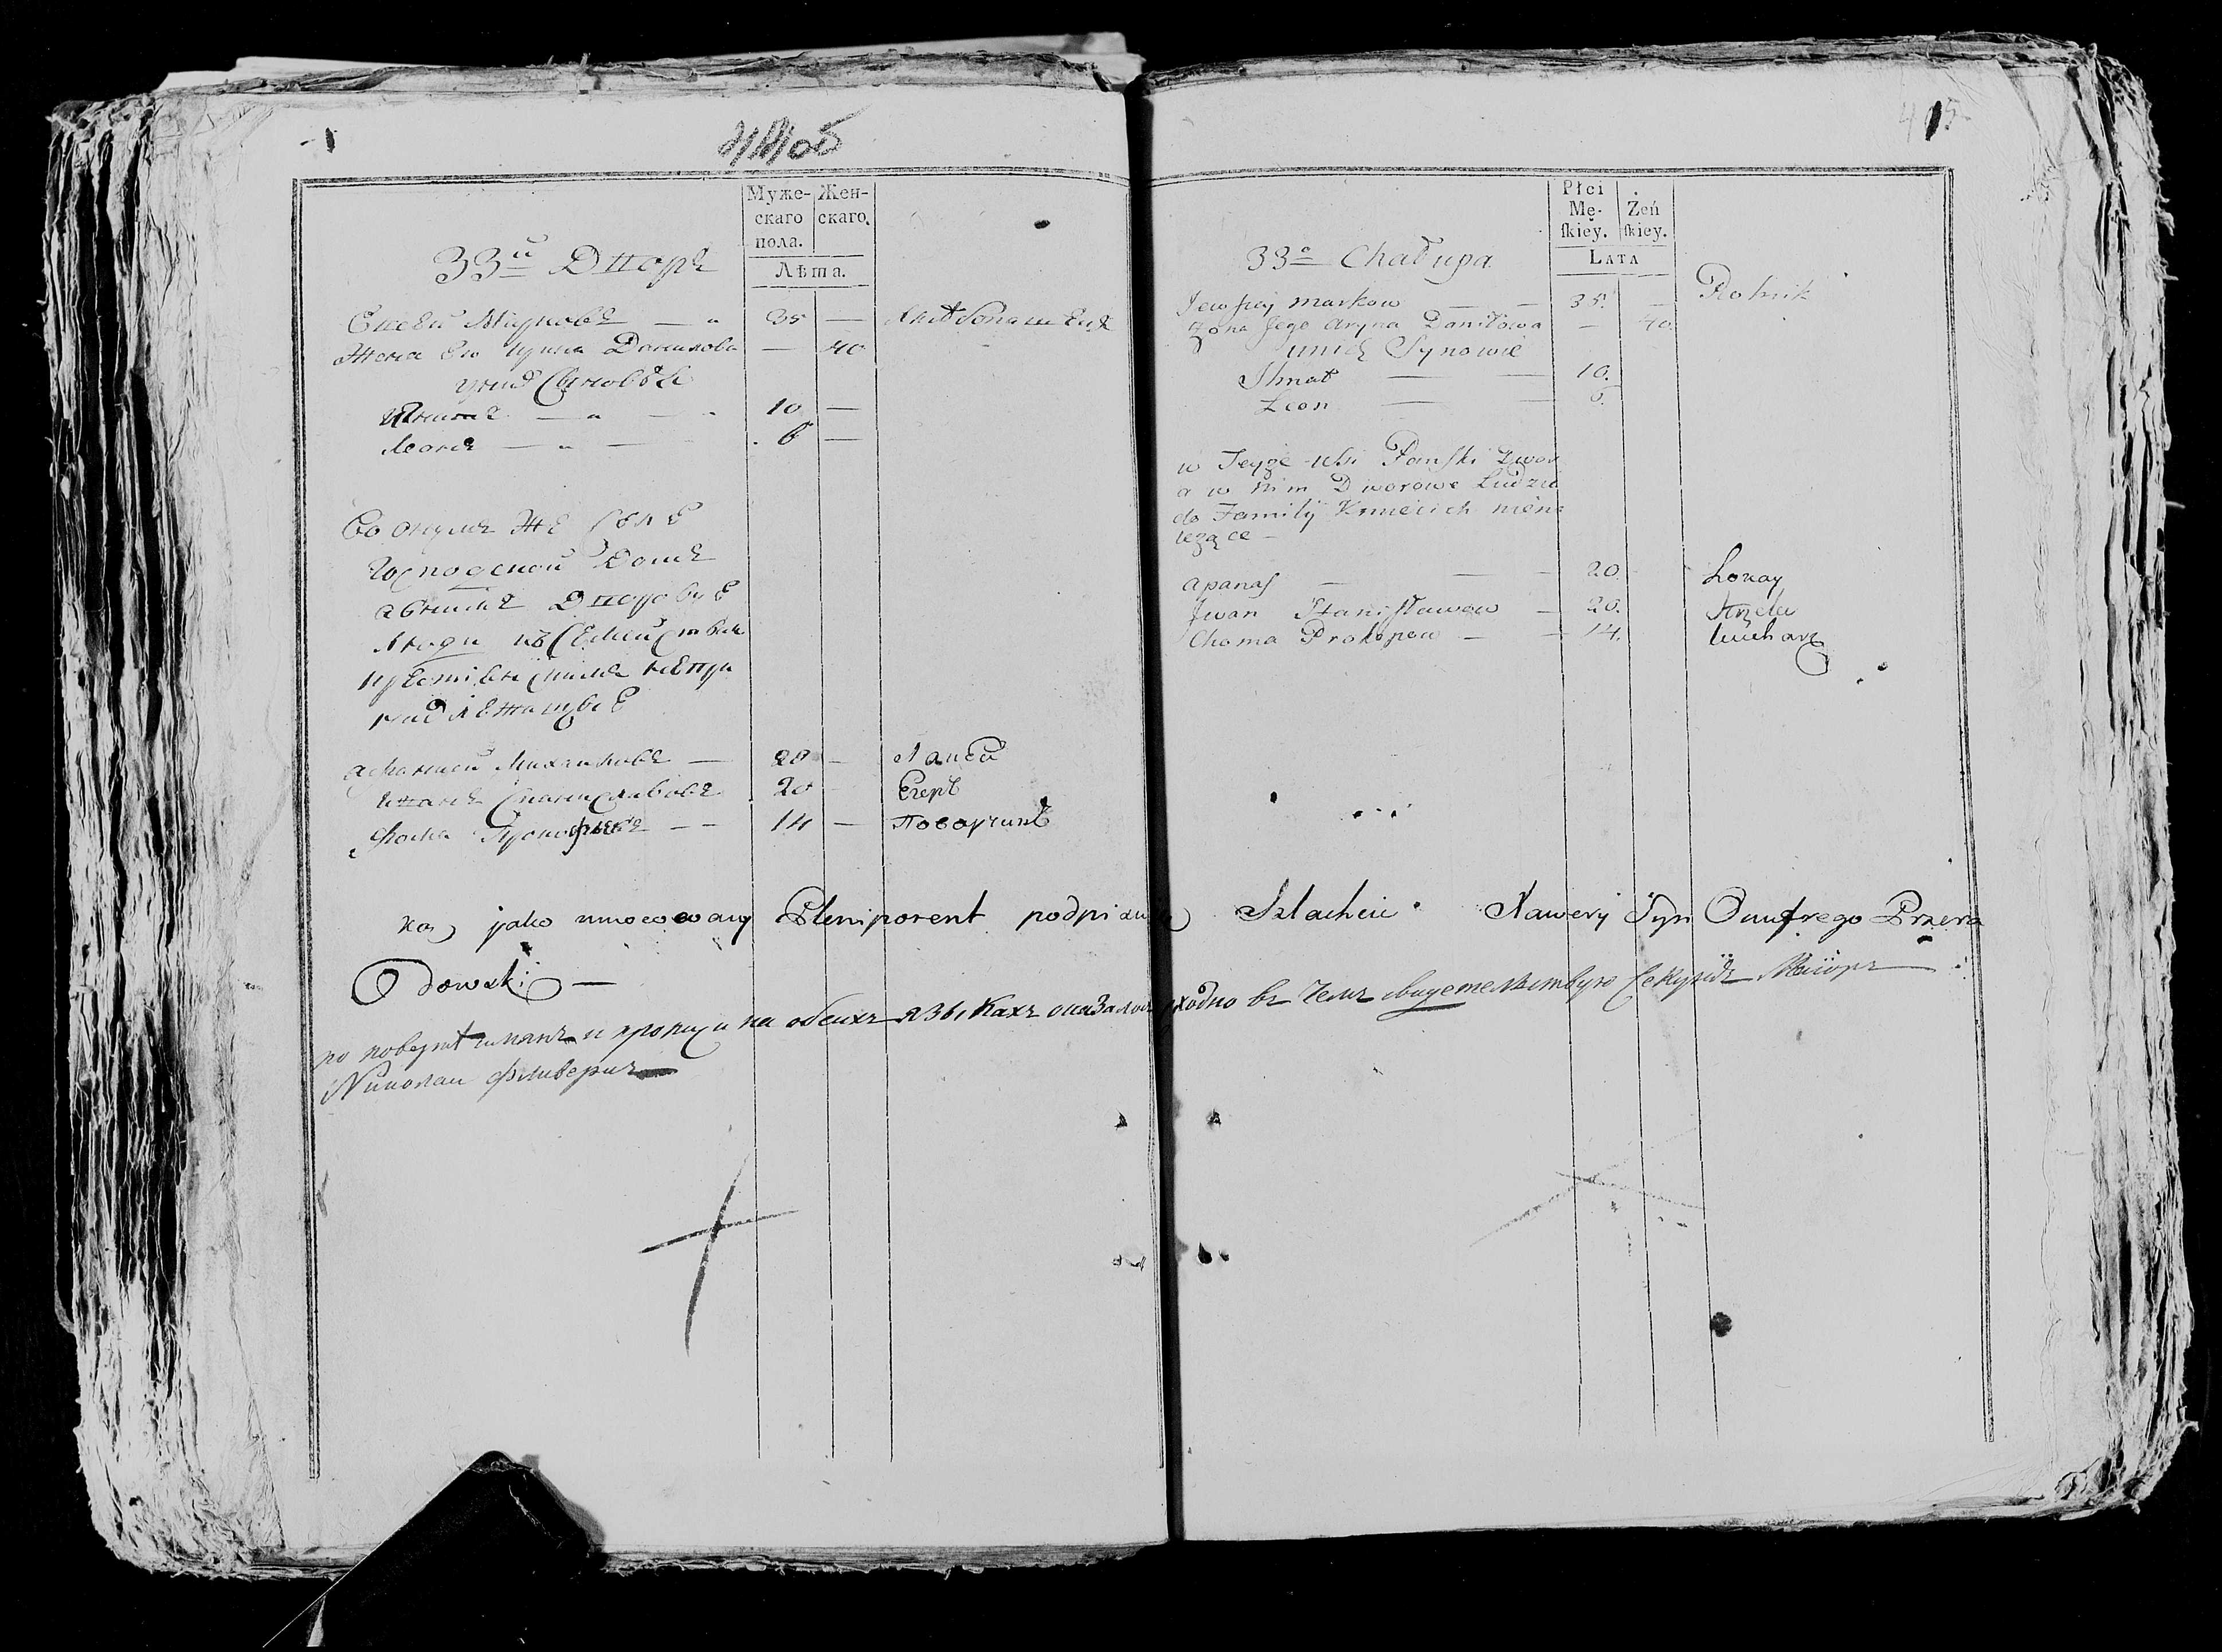 414об
Муже-
скаго
пола.
Жен-
скаго.
Лѣта.
33й Дворъ
Евсей Марковъ — 35 — Хлѣбопашецъ
Жена Его Ирина Данилова — 40
у них Сыновья
Игнатъ — 10 —
Леонъ — 6 —
Во оном же Селе
Господской Домъ
а в нимъ Дворовые
Люди к Семействам
крестьянскимъ непри
надлежащые
Афанасей Михайловъ — 20 — Лакей
Иванъ Станиславовъ 20 Егерь
Фома Прокофьевъ — 14 — Поварчикъ
415
Płci
Mę-
ſkiey.
Żeń
ſkiey.
LATA
33a Chałupa
Jewsiey Markow — 35. — Rolnik
Zona Jego Aryna Daniłowa — 40.
u nich Synowie
Ihnat — 10.
Leon — 6.
w Teyże wsi Pański Dwor
a w nim Dworowe Ludzie
do Familÿ Kmiecich niena
leżące —
Apanas — 20. Lokay
Jwan Stanisławow — 20. Strzelec
Choma Prokopow — 14. kucharz
jako umocowany Plenipotent podpisuję Szlachcic Xawery Syn Onufrego Przera
Odowski —
по поверке и на обеихъ языкахъ оказалось сходно въ Чемъ свидетельствую Секундъ Маiоръ
Николай